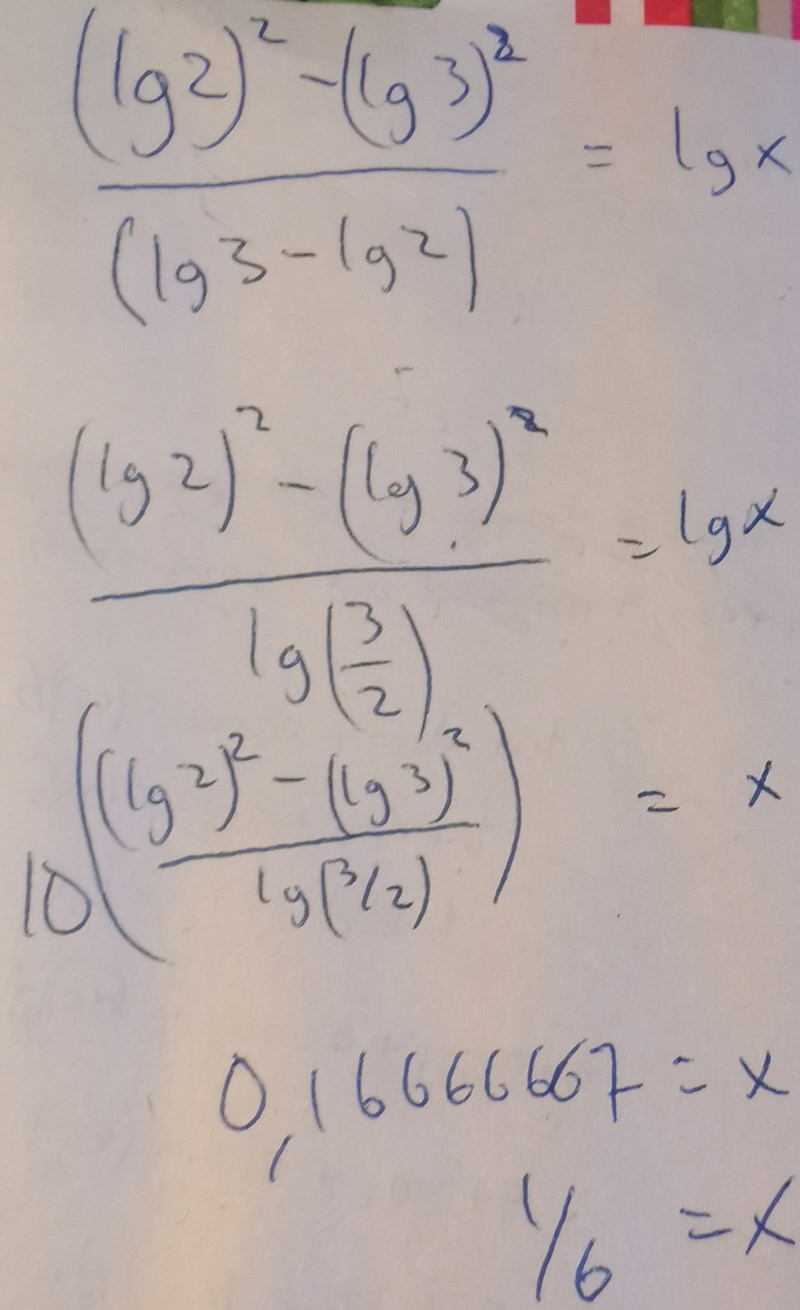 (lg 2)² - (lg 3)² / (lg 3 - lg 2) = lg x
(lg 2)² - (lg 3)² / lg(3/2) = lg x
10^((lg 2)² - (lg 3)² / lg(3/2)) = x
0,16666667 = x
1/6 = x